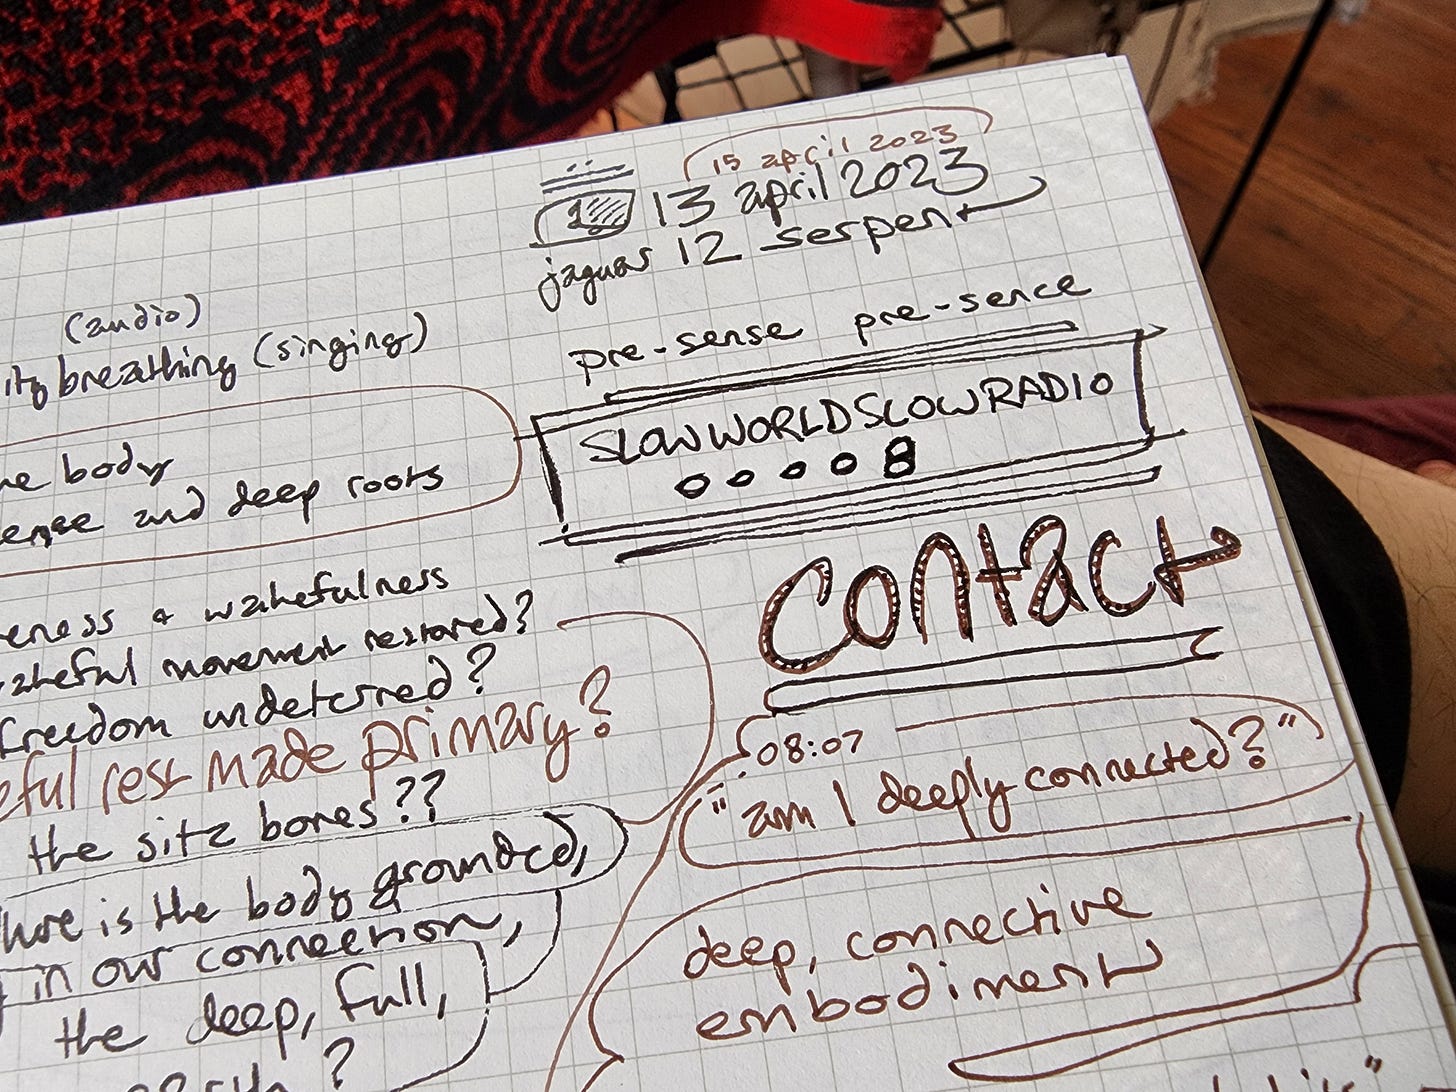 15 april 2023
1 13 april 2023
jaguar 12 serpent
pre-sense pre-sence
SLOWWORLDSLOWRADIO
00008
contact
08:07
"am I deeply connected?"
deep, connective
embodiment
(audio)
breathing (singing)
body
and deep roots
& wakefulness
movement restored?
freedom undeterred?
rest made primary?
the sitz bones??
is the body grounded,
in our connection,
the deep, full,
?